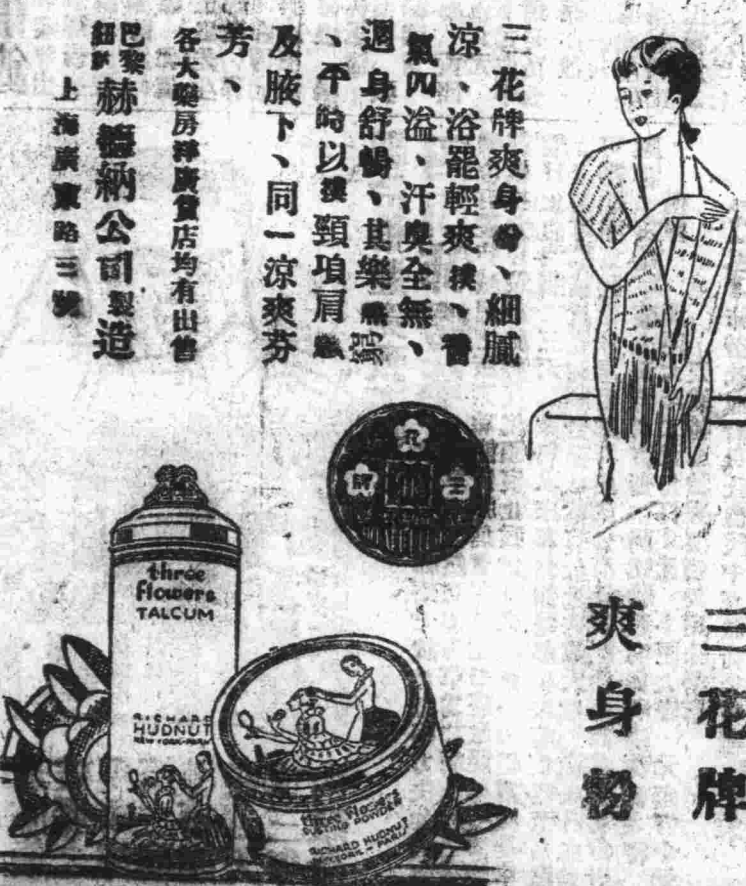 三花牌爽身粉、細膩
涼、浴罷輕爽撲、香
氣四溢、汗臭全無、
週身舒暢、其樂無窮
、平時以撲頸項肩
及腋下、同一涼爽芬
芳、
各大藥房洋廣貨店均有出售
巴黎
紐約
赫德納公司製造
上海廣東路三號
三花牌
three
flowers
TALCUM
RICHARD
HUDNUT
NEW YORK-PARIS
three flowers
DUSTING POWDER
RICHARD HUDNUT
NEW YORK PARIS
三花牌
爽身粉